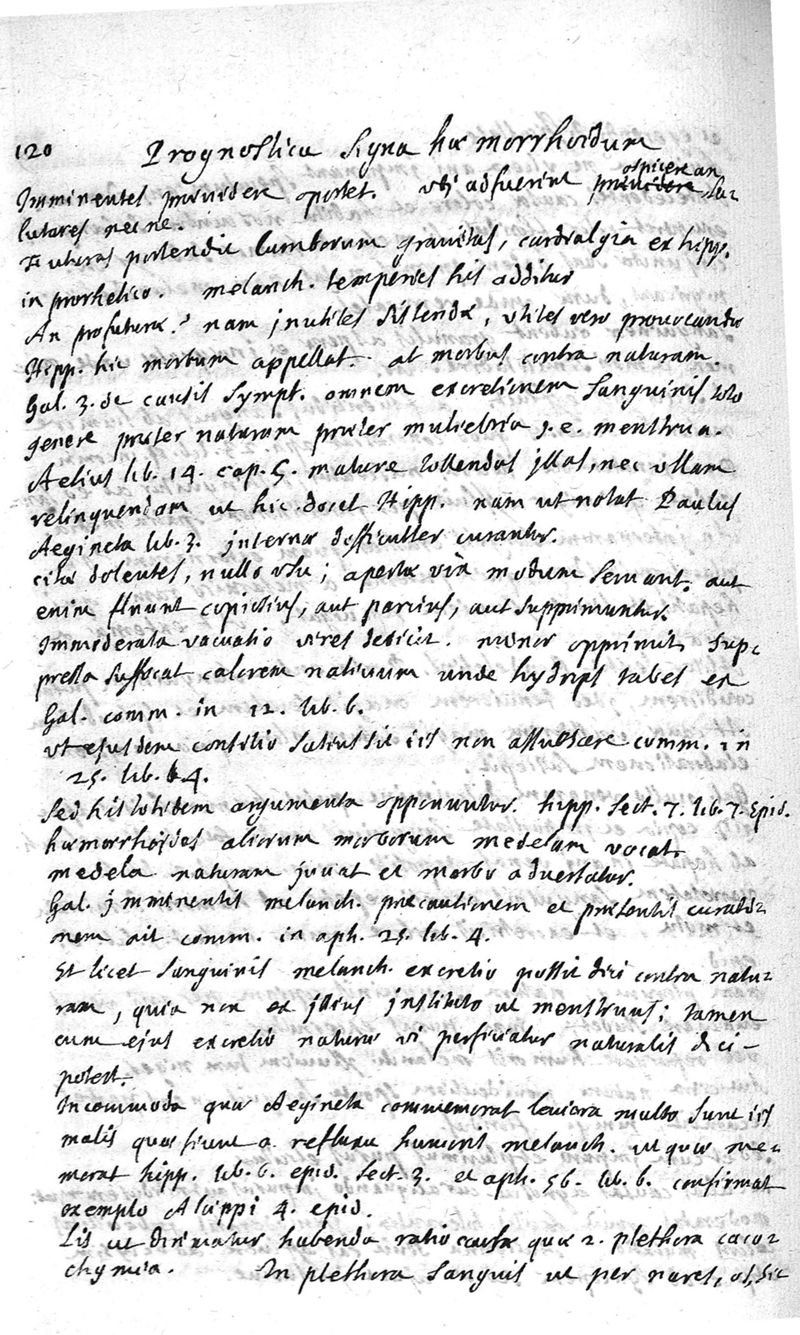 120 Prognostica signa hæmorrhoidum
Imminentes prævidere oportet. ubi adfuerint ~~prævidere~~ ospicere an salu-
lutares necne.
Futuras portendit lumborum gravitas, cardialgia ex hipp.
in prorhetico. melanch. temperies his additur
An profuturæ? nam inutiles sistendæ, utiles vero provocandæ
Hipp. hic morbum appellat. at morbus contra naturam.
Gal. 3. de causis sympt. omnem excretionem sanguinis toto
genere præter naturam præter muliebria j. e. menstrua.
Aetius lib. 14. cap. 5. mature tollendas illas, nec ullam
relinquendam ut hic docet Hipp. nam ut notat Paulus
Aegineta lib. 3. internæ difficulter curantur.
dolentes, nullo usu; apertæ vix modum servant. aut
enim fluunt copiosius, aut parcius, aut supprimuntur.
Immoderata vacuatio vires deiicit. minor opprimit, sup-
pressa suffocat calorem nativum unde hydrops tabes ex
Gal. comm. in 12. lib. 6.
ut ejusdem consilio satius sit iis non assuescere comm. in
25. lib. 4.
Sed his totidem argumenta opponuntur. hipp. sect. 7. lib. 7. Epid.
hæmorrhoides aliorum morborum medelam vocat.
medela naturam juvat et morbo adversatur.
Gal. imminentis melanch. præcautionem et præsentis curatio-
nem ait comm. in aph. 25. lib. 4.
Et licet sanguinis melanch. excretio possit dici contra natu-
ram, quia non ex illius instituto ut menstruus; tamen
cum ejus excretio naturæ vi perficiatur naturalis dici-
potest.
Incommoda quæ Aegineta commemorat leviora multo sunt iis
malis quæ fiunt a refluxu humoris melanch. ut quæ me-
morat hipp. lib. 6. epid. sect. 3. et aph. 56. lib. 6. confirmat
exemplo Alcippi 4. epid.
Lis ut dirimatur habenda ratio causæ quæ 2. plethora caco-
chymia. In plethora sanguis ut per nares, os, sic